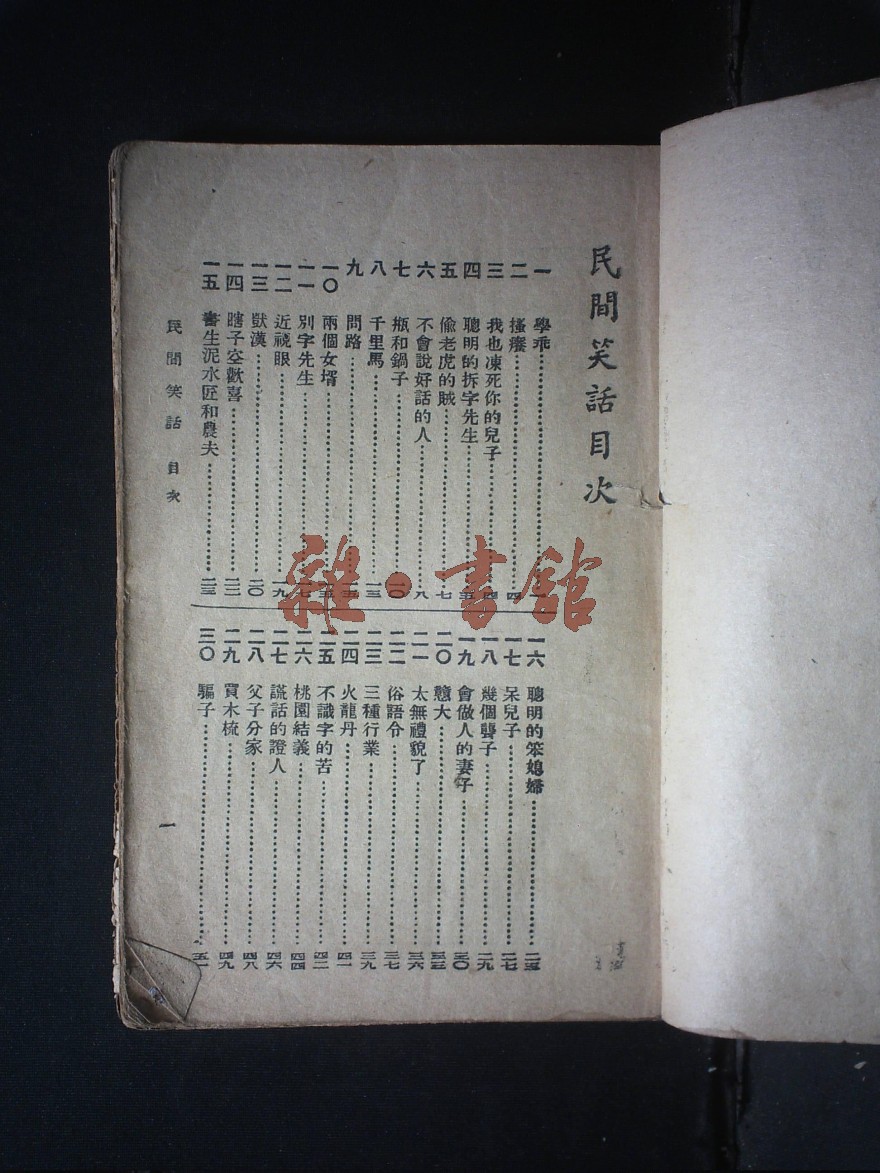 民間笑話目次
一 學乖 一
二 搔癢 四
三 我也凍死你的兒子 四
四 聰明的拆字先生
五 偷老虎的賊 七
六 不會說好話的人 八
七 瓶和鍋子 一〇
八 千里馬 一三
九 問路
一〇 兩個女壻
一一 別字先生
一二 近視眼 一九
一三 獃漢 二〇
一四 瞎子空歡喜 二二
一五 書生泥水匠和農夫 二三
一六 聰明的笨媳婦 二五
一七 呆兒子 二七
一八 幾個聾子 二九
一九 會做人的妻子 三〇
二〇 戇大 三三
二一 太無禮貌了 三六
二二 俗語令 三七
二三 三種行業 三九
二四 火龍丹 四一
二五 不識字的苦 四二
二六 桃園結義 四四
二七 謊話的證人 四六
二八 父子分家 四八
二九 買木梳 四九
三〇 騙子 五一
民間笑話 目次
一
雜·書館